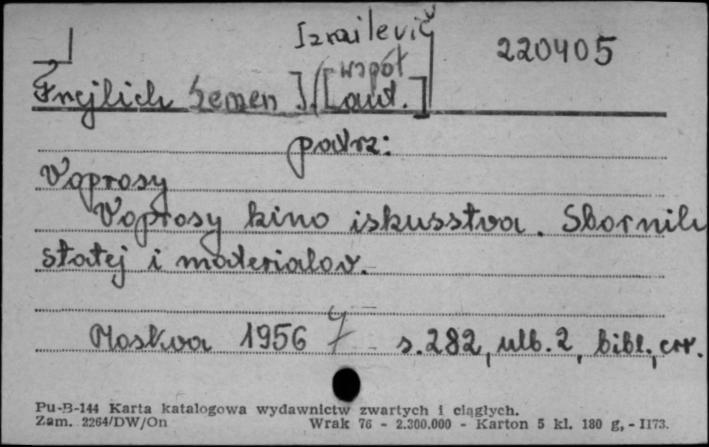 Izrailevič
220405
Frejlich Semen I. [współ
aut.]
patrz:
Voprosy
Voprosy kino iskusstva. Sbornik
statej i materialov.
Moskva 1956 s. 282, ulb. 2, bibl., err.
Pu-B-144 Karta katalogowa wydawnictw zwartych i ciągłych.
Zam. 2264/DW/On Wrak 76 - 2.300.000 - Karton 5 kl. 180 g, - II73.